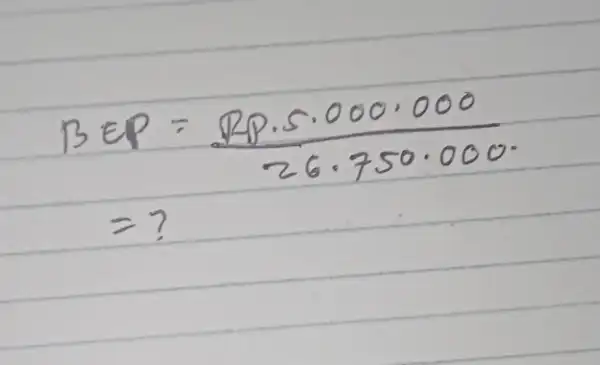 BEP = RP.5.000.000
26.750.000.
= ?